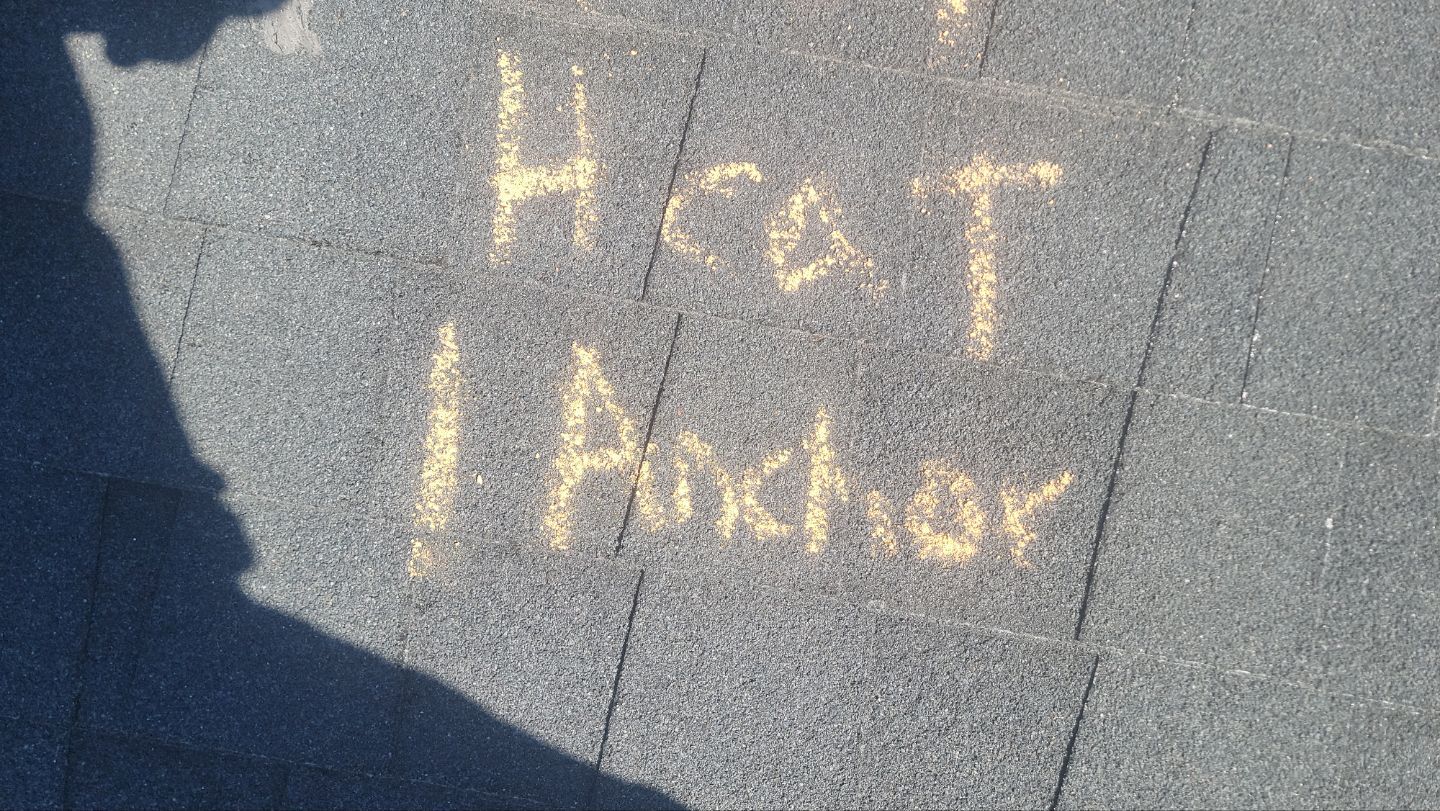 Heat
1 Anchor